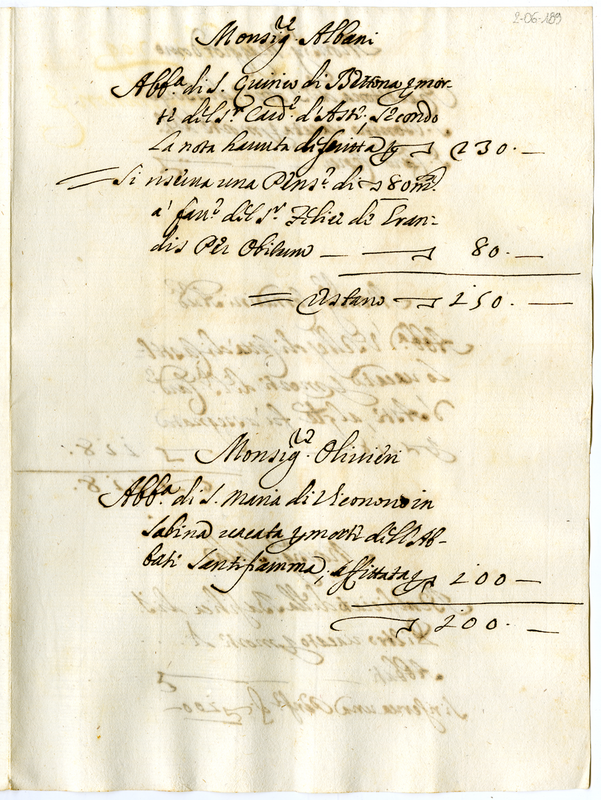 2-06-189
Monsig.re Albani
Abb.a di S. Quirico di Bettona p mor-
te del S.r Card.e d'Asti, secondo
la nota havuta 230.—
Si riserva una Pens.e di 80 m.ta
à fau.e del S.r Felice de Gran-
dis Per Obitum — — 80.—
Restano 150.—
Monsig.re Olivieri
Abb.a di S. Maria di Viconovo in
Sabina vacata p morte dell'Ab-
bate Santifiamma, affittata p 200 —
200.—